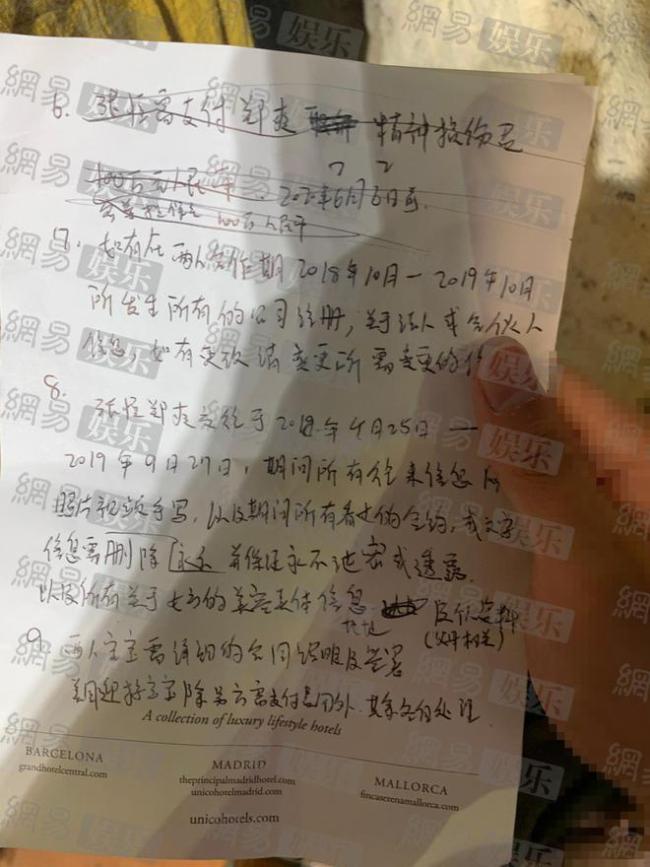 6. 张恒需支付郑爽 精神损伤是
100万元人民币. 2020年6月6日前.
100万人民币
7. 如有在两人合作期 2018年10月—2019年10月
所发生所有的公司注册, 关于法人或合伙人
信息, 如有变更 请变更所需变更的
8.
张恒郑爽交往于 2018年4月25日 —
2019年9月27日, 期间所有往来信息及
照片视频手写, 以及期间所有者 合约, 或文字
信息需删除 永久 并保证永不泄密或透露.
以及所有关于女方的美容身体信息 及
9. 两人宝宝需详细的合同说明及签署
除 需支付费用外 处理
A collection of luxury lifestyle hotels
BARCELONA
grandhotelcentral.com
MADRID
theprincipalmadridhotel.com
unicohotelmadrid.com
MALLORCA
fincaserenamallorca.com
unicohotels.com
網易娱乐